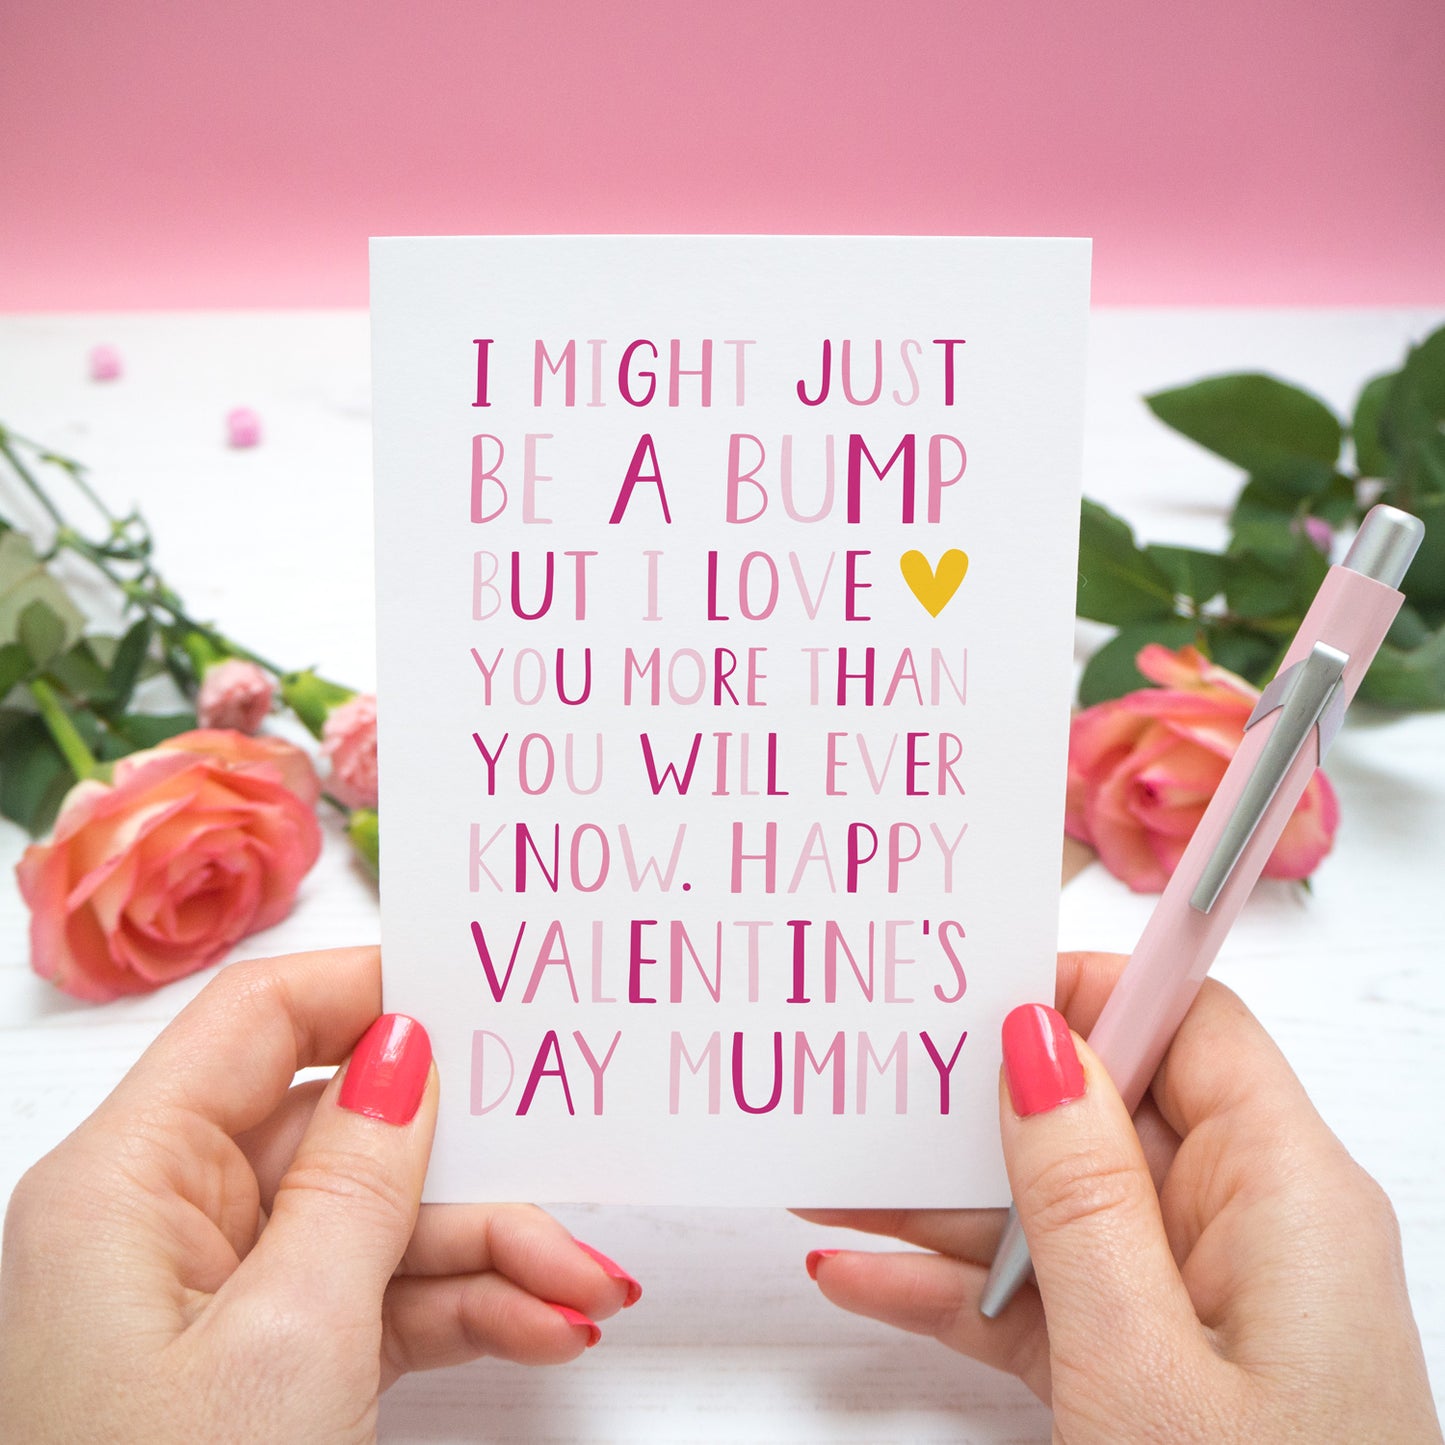 I MIGHT JUST
BE A BUMP
BUT I LOVE
YOU MORE THAN
YOU WILL EVER
KNOW. HAPPY
VALENTINE'S
DAY MUMMY